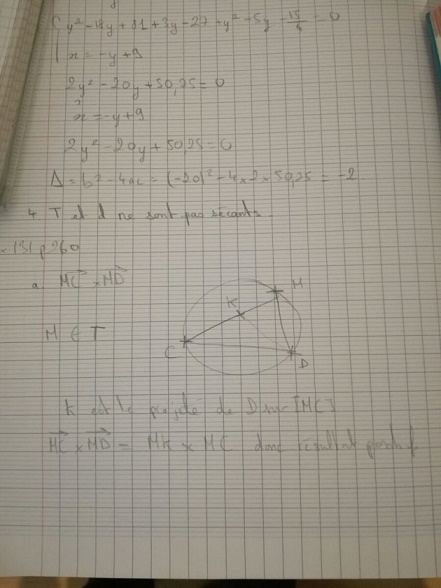 y² - 18y + 81 + 3y - 27 + y² - 5y - 15/4 = 0
x = -y + 9
2y² - 20y + 50,25 = 0
x = -y + 9
2y² - 20y + 50,25 = 0
Δ = b² - 4ac = (-20)² - 4 × 2 × 50,25 = -2
4. T et d ne sont pas sécants.
131 p260
a. MC × MD
M
K
M ∈ T
C
D
K est le projeté de D sur [MC]
MC × MD = MK × MC donc résultat positif